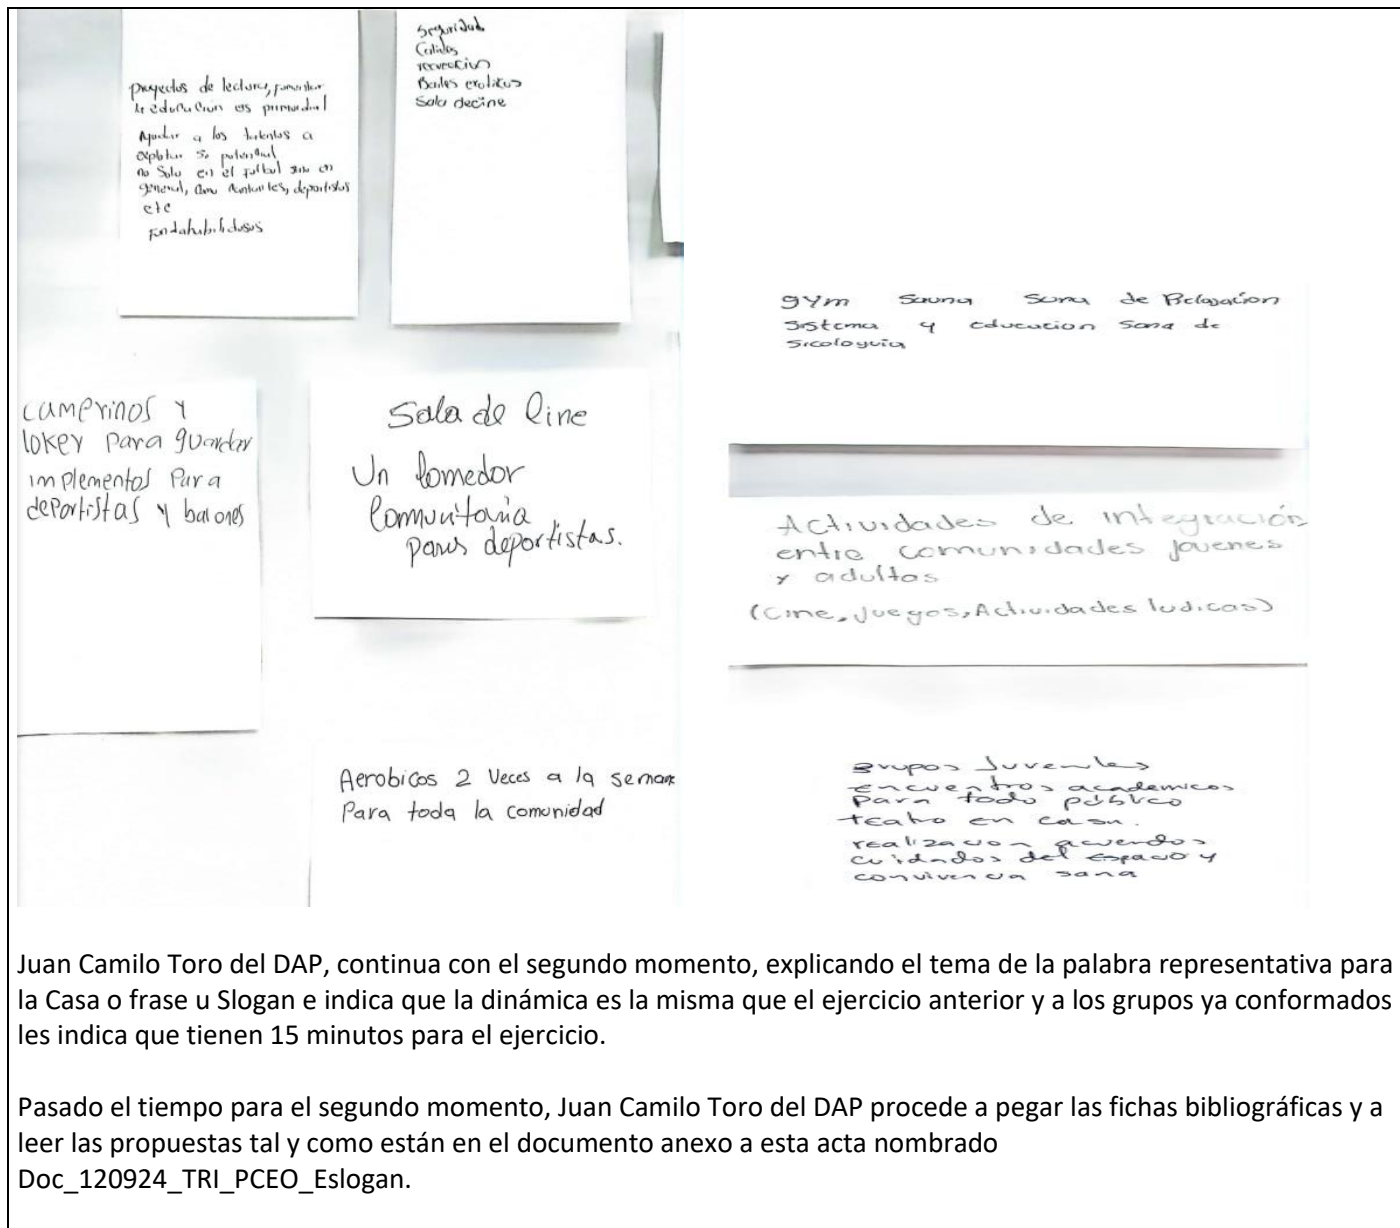 proyectos de lectura, fomentar
la educacion es primordial
Ayudar a los talentos a
explotar su potencial
no solo en el futbol sino en
general, como cantantes, deportistas
etc
Seguridad
recreacion
Bailes eroticos
Sala decine
camerinos y
lokey Para guardar
implementos Para
deportistas y balones
Sala de Cine
Un Comedor
Comunitaria
para deportistas.
Aerobicos 2 Veces a la seman
Para toda la comunidad
gym Sauna Sona de Relagacion
Sistema y educacion Sona de
Sicologuia
Actividades de integración
entre comunidades jovenes
y adultas
(Cine, Juegos, Actividades ludicas)
grupos Juveniles
encuentros academicos
Para todo público
teatro en casa.
realizacion acuerdos
cuidados del espacio y
convivencia sana
Juan Camilo Toro del DAP, continua con el segundo momento, explicando el tema de la palabra representativa para
la Casa o frase u Slogan e indica que la dinámica es la misma que el ejercicio anterior y a los grupos ya conformados
les indica que tienen 15 minutos para el ejercicio.
Pasado el tiempo para el segundo momento, Juan Camilo Toro del DAP procede a pegar las fichas bibliográficas y a
leer las propuestas tal y como están en el documento anexo a esta acta nombrado
Doc_120924_TRI_PCEO_Eslogan.